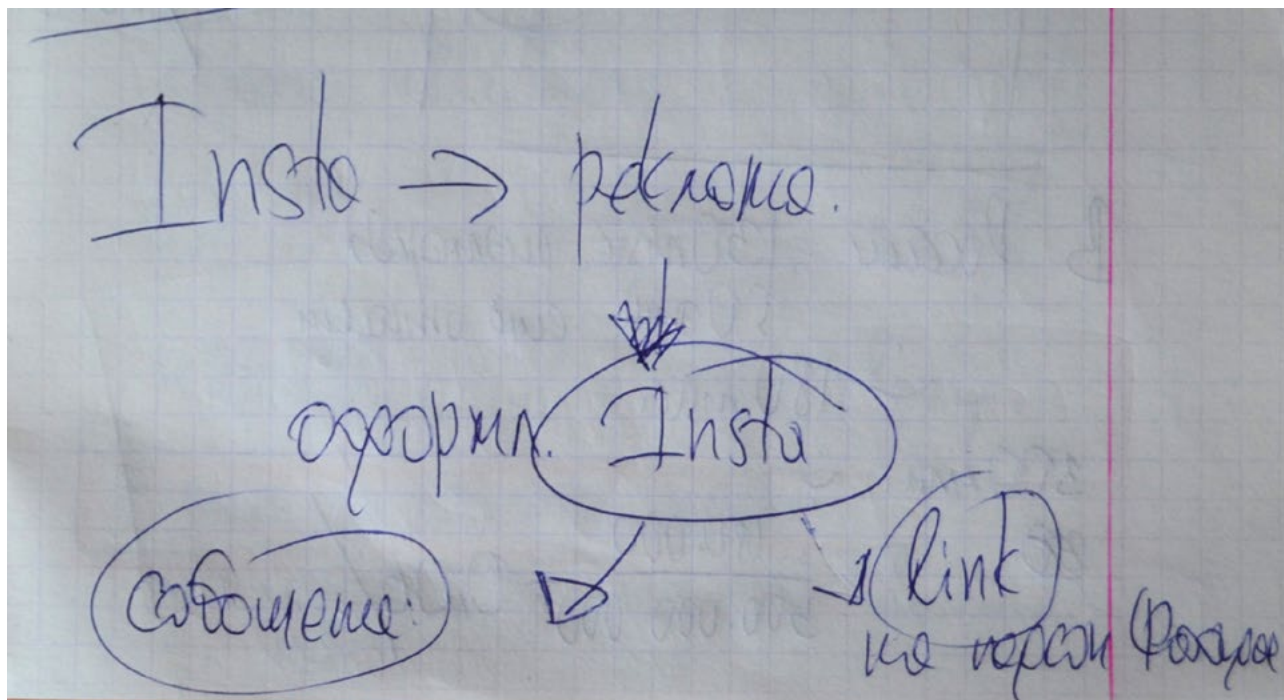 Insta → реклама.
оформл. Insta
сообщение.
link
на персон